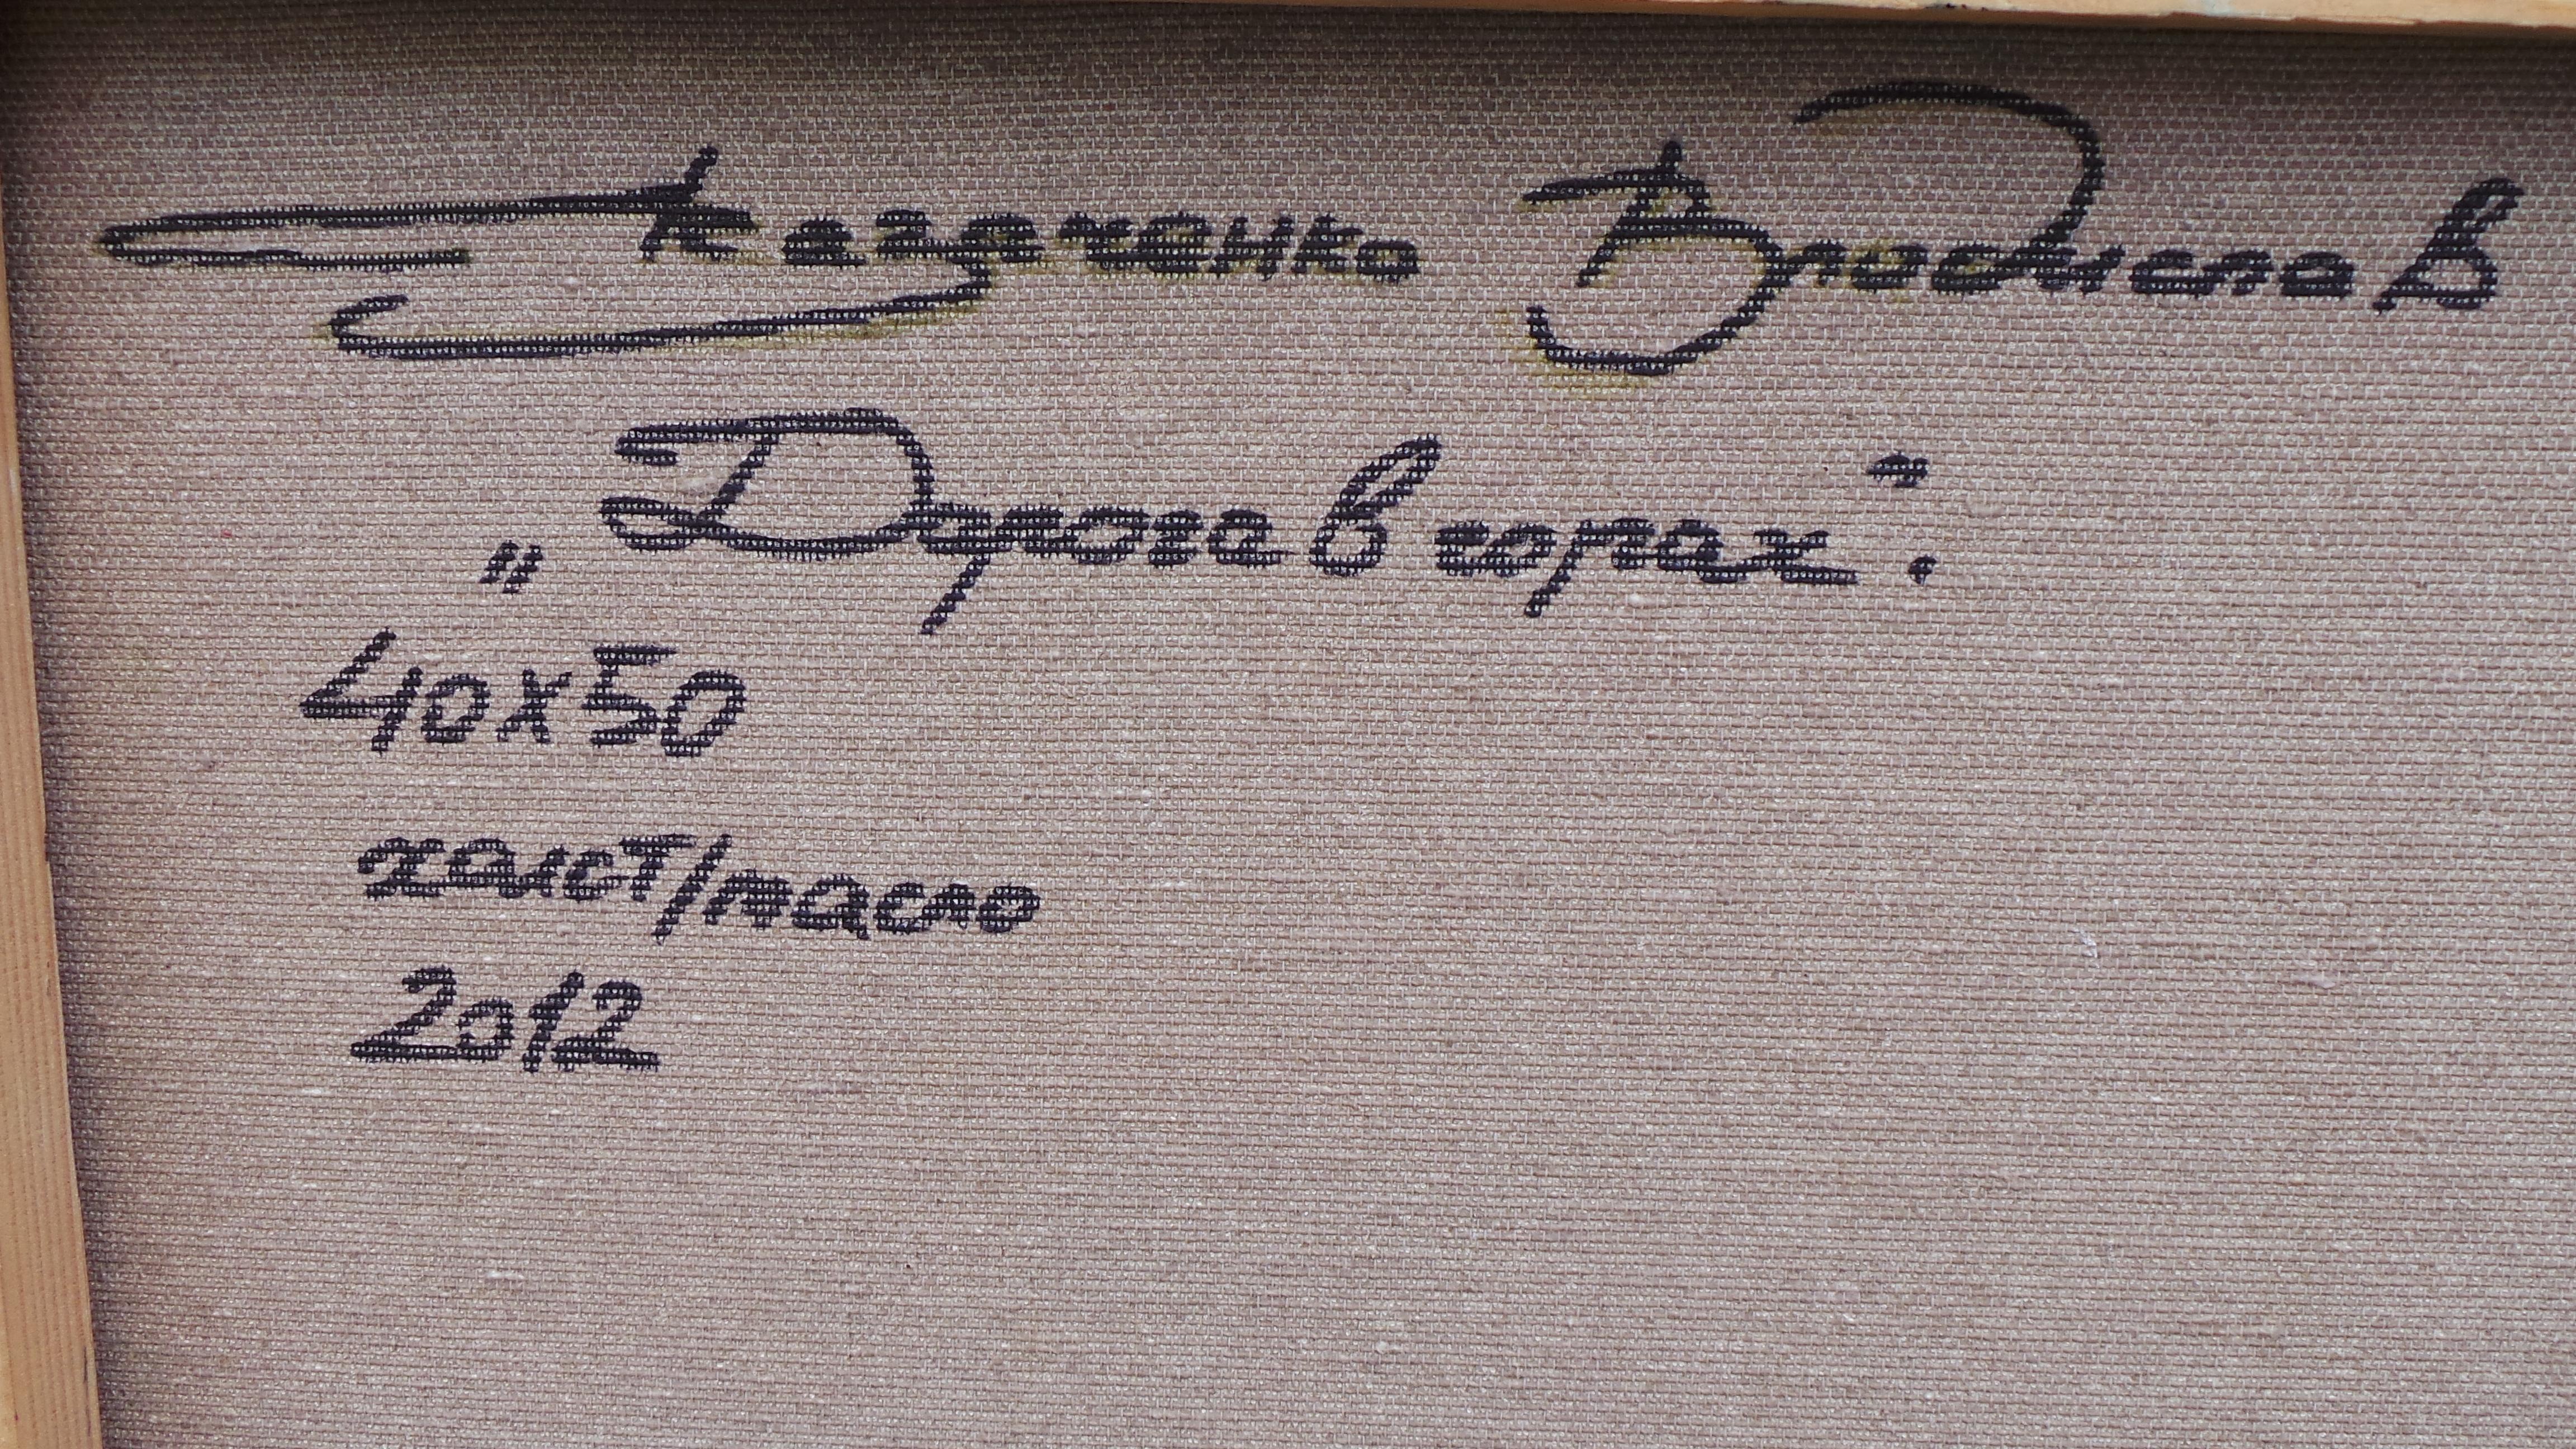 Казаченко Владислав
„Дорога в горах".
40х50
холст/масло
2012